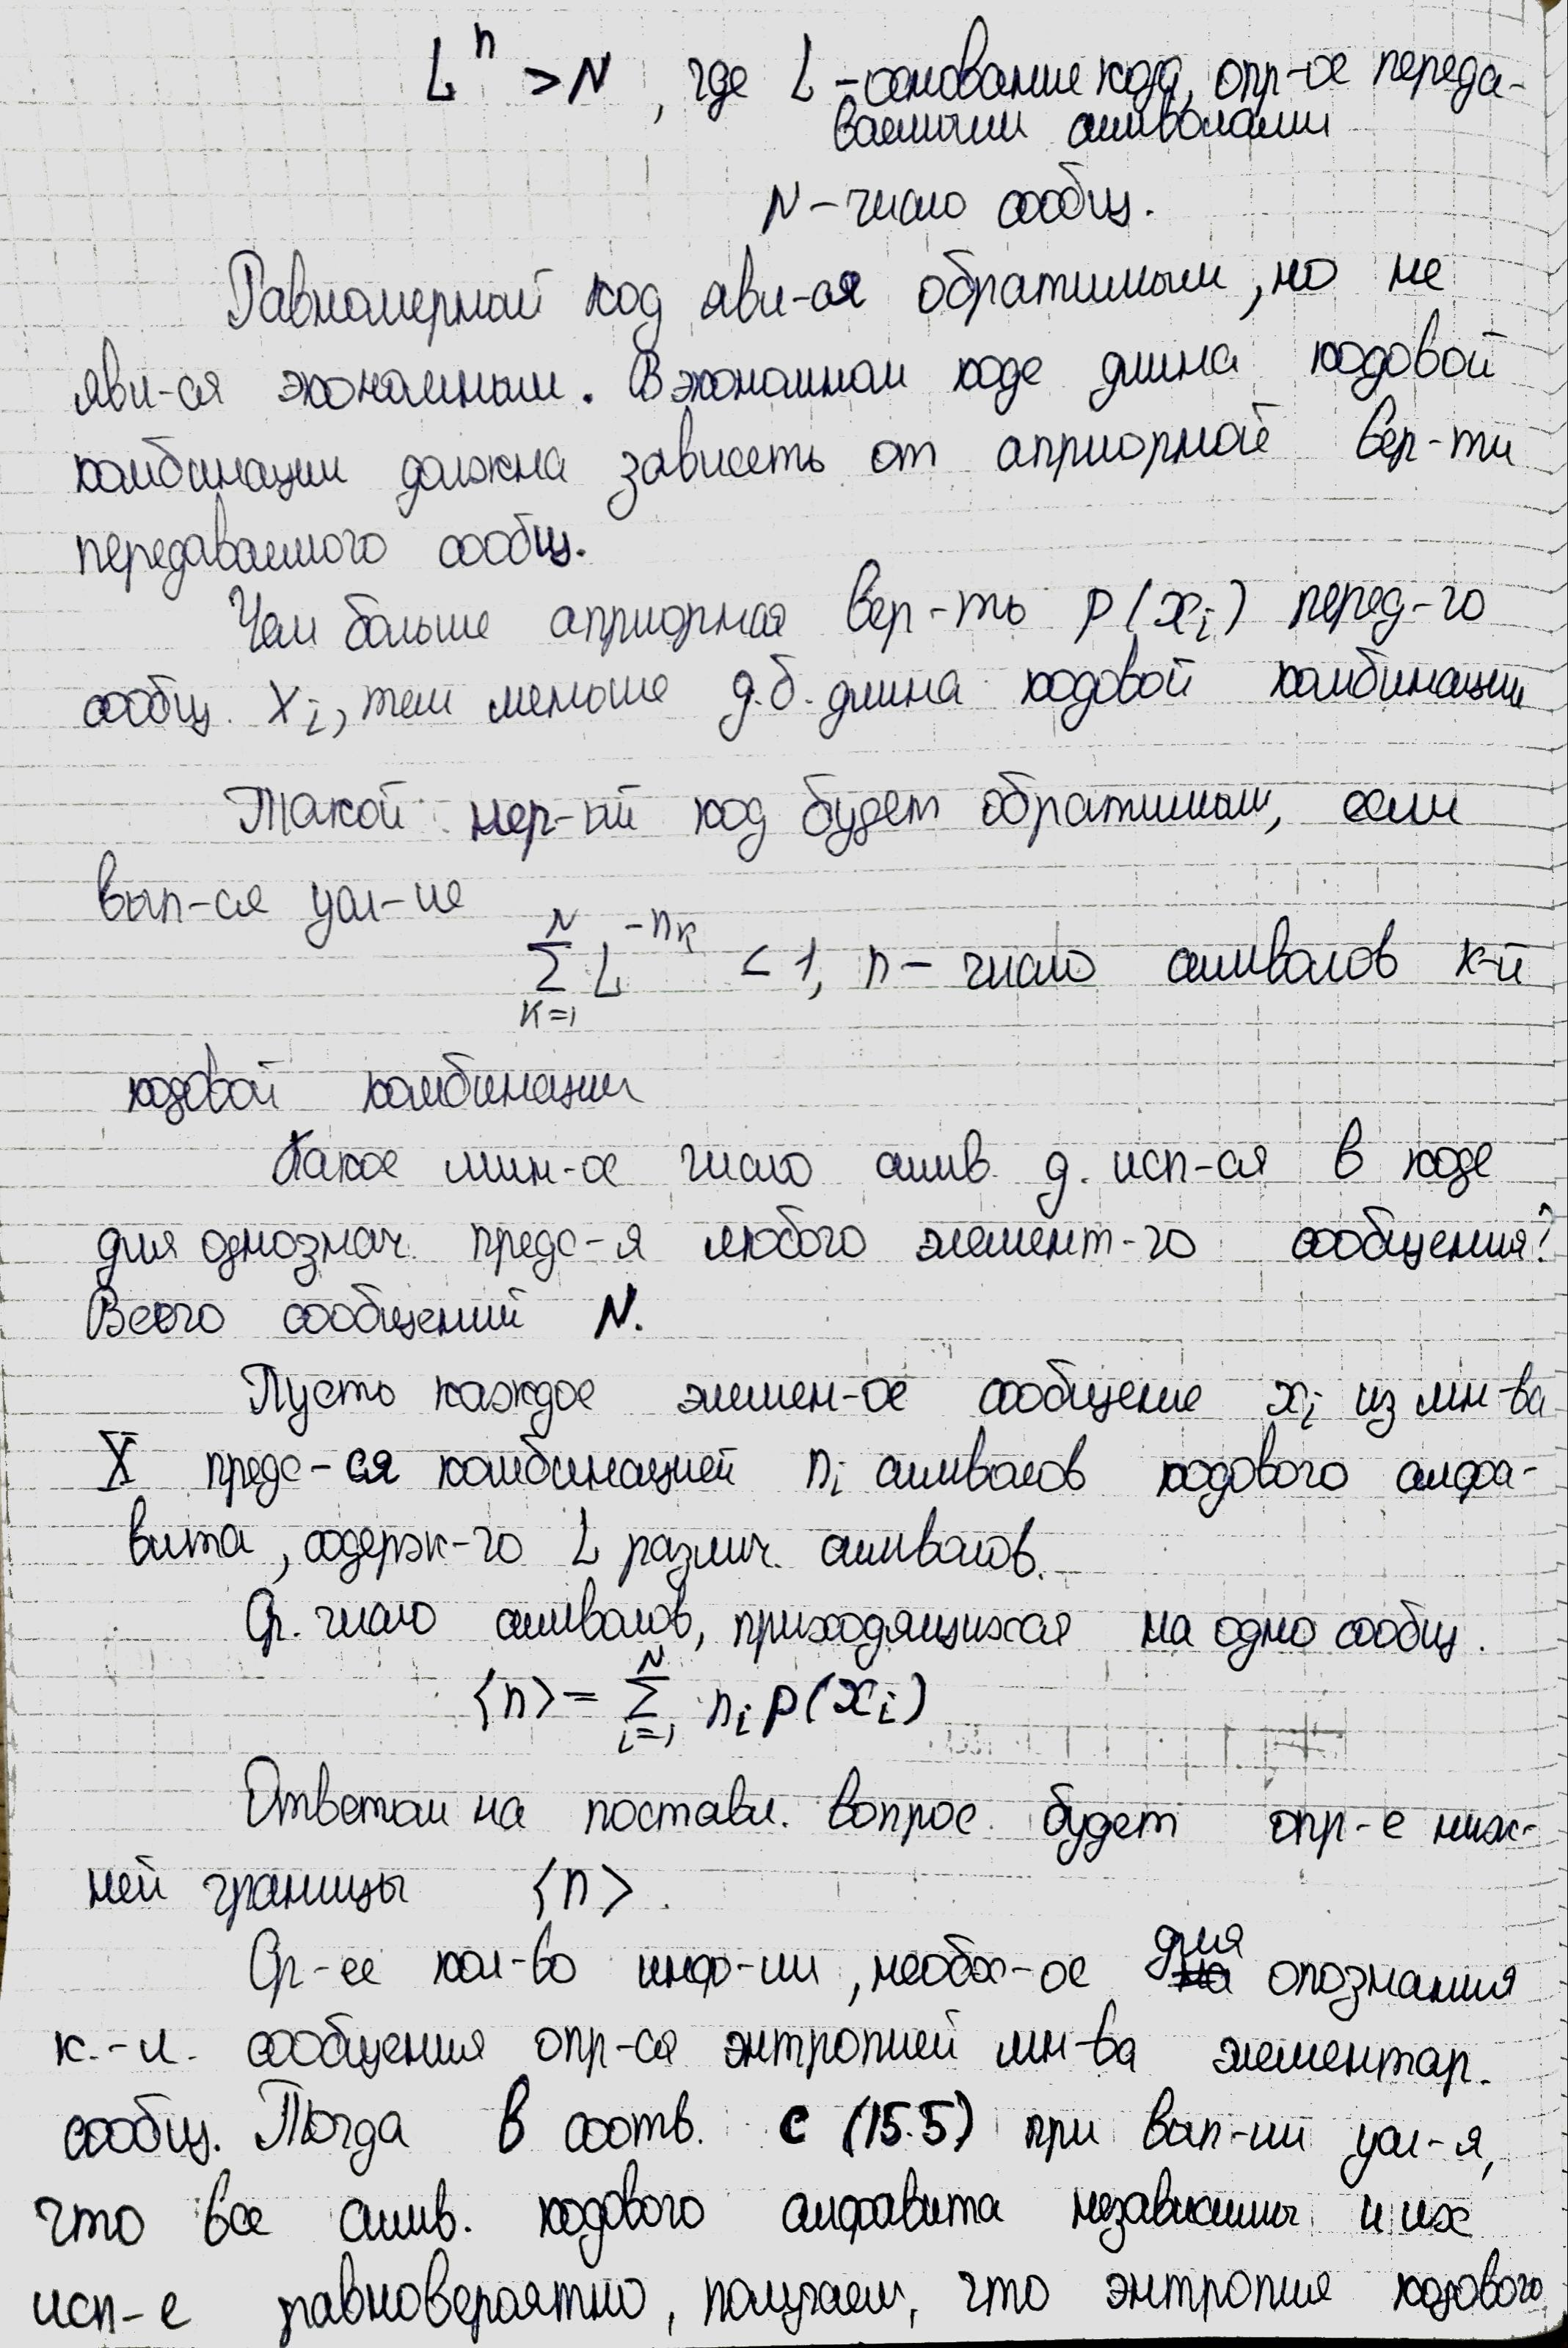 L^n > N, где L - основание кода, опр-ое переда-
ваемыми символами
N - число сообщ.
Равномерный код явл-ся обратимым, но не
явл-ся экономным. В экономном коде длина кодовой
комбинации должна зависеть от априорной вер-ти
передаваемого сообщ.
Чем больше априорная вер-ть p(x_i) перед-го
сообщ. x_i, тем меньше д.б. длина кодовой комбинации
Такой нер-ый код будет обратимым, если
вып-ся усл-ие
∑_{k=1}^{N} L^{-n_k} < 1, n - число символов k-й
кодовой комбинации
Какое мин-ое число симв. д. исп-ся в коде
для однознач. предс-я любого элемент-го сообщения?
Всего сообщений N.
Пусть каждое элемен-ое сообщение x_i из мн-ва
X предс-ся комбинацией n_i символов кодового алфа-
вита, содерж-го L различ. символов.
Ср. число символов, приходящихся на одно сообщ.
<n> = ∑_{i=1}^{N} n_i p(x_i)
Ответом на поставл. вопрос будет опр-е ниж-
ней границы <n>.
Ср-ее кол-во инф-ии, необх-ое для опознания
к.-л. сообщения опр-ся энтропией мн-ва элементар.
сообщ. Тогда в соотв. с (15.5) при вып-ии усл-я,
что все симв. кодового алфавита независимы и их
исп-е равновероятно, получаем, что энтропия кодового